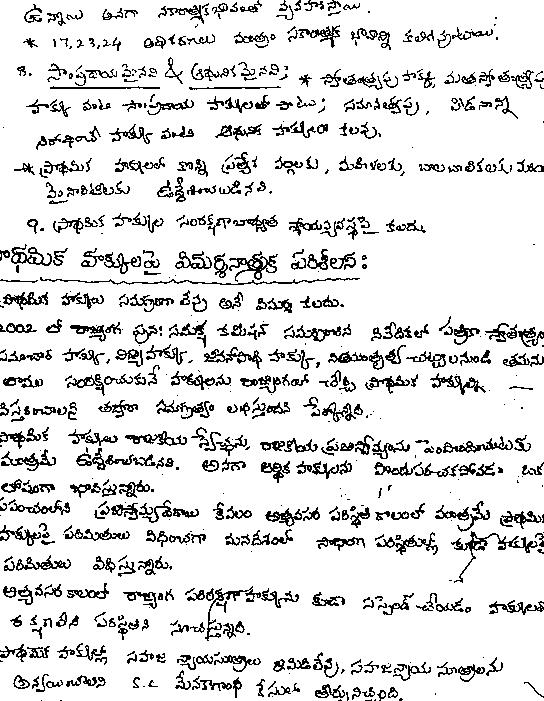 ఉన్నాయి అనగా నకారాత్మకభావంతో వ్యవహరిస్తాయి.
* 17,23,24 అధికరణలు మాత్రం సకారాత్మక భావాన్ని కలిగివుంటాయి.
8. సాంప్రదాయమైనవి & ఆధునికమైనవి; * స్వాతంత్ర్యపు హక్కు, మతస్వాతంత్ర్యపు
హక్కు వంటి సాంప్రదాయ హక్కులతో పాటు; సమానత్వపు, పీడనాన్ని
నిరోధించే హక్కు వంటి ఆధునిక హక్కులు కలవు.
→* ప్రాథమిక హక్కులలో కొన్ని ప్రత్యేక వర్గాలకు, మహిళలకు, బాలబాలికలకు
మైనారిటీలకు ఉద్దేశించబడినవి.
9. ప్రాథమిక హక్కుల సంరక్షణాబాధ్యత న్యాయవ్యవస్థపై కలదు.
ప్రాథమిక హక్కులపై విమర్శనాత్మక పరిశీలన:
ప్రాథమిక హక్కులు సమగ్రంగా లేవు అనే విమర్శ కలదు.
2002 లో రాజ్యాంగ పునః సమీక్ష కమిషన్ సమర్పించిన నివేదికలో పత్రికా స్వాతంత్ర్యం
సమాచార హక్కు, విద్యాహక్కు, జీవనోపాధి హక్కు, నియంతృత్వ చట్టాలనుండి తమను
తాము సంరక్షించుకునే హక్కులను రాజ్యాంగంలో చేర్చి ప్రాథమిక హక్కుల్ని
విస్తరించాలని తద్వారా సమగ్రత్వం లభిస్తుందని పేర్కొన్నది.
ప్రాథమిక హక్కులు రాజకీయ స్వేచ్ఛను, రాజకీయ ప్రజాస్వామ్యంను పెంపొందించుటకు
మాత్రమే ఉద్దేశించబడినవి. అనగా ఆర్థిక హక్కులను పొందుపరచకపోవడం ఒక
లోపంగా భావిస్తున్నారు.
ప్రపంచంలోని ప్రజాస్వామ్యదేశాలు కేవలం అత్యవసర పరిస్థితి కాలంలో మాత్రమే ప్రాథమిక
హక్కులపై పరిమితులు విధించగా మనదేశంలో సాధారణ పరిస్థితుల్లో కూడా హక్కులపై
పరిమితులు విధిస్తున్నారు.
అత్యవసర కాలంలో రాజ్యాంగ పరిరక్షణాహక్కును కూడా సస్పెండ్ చేయడం హక్కులకు
రక్షణలేని పరిస్థితిని సూచిస్తున్నది.
ప్రాథమిక హక్కుల్లో సహజ న్యాయసూత్రాలు ఇమిడిలేవు, సహజన్యాయ సూత్రాలను
అన్వయించాలని S.C మేనకాగాంధీ కేసులో తీర్పునిచ్చింది.